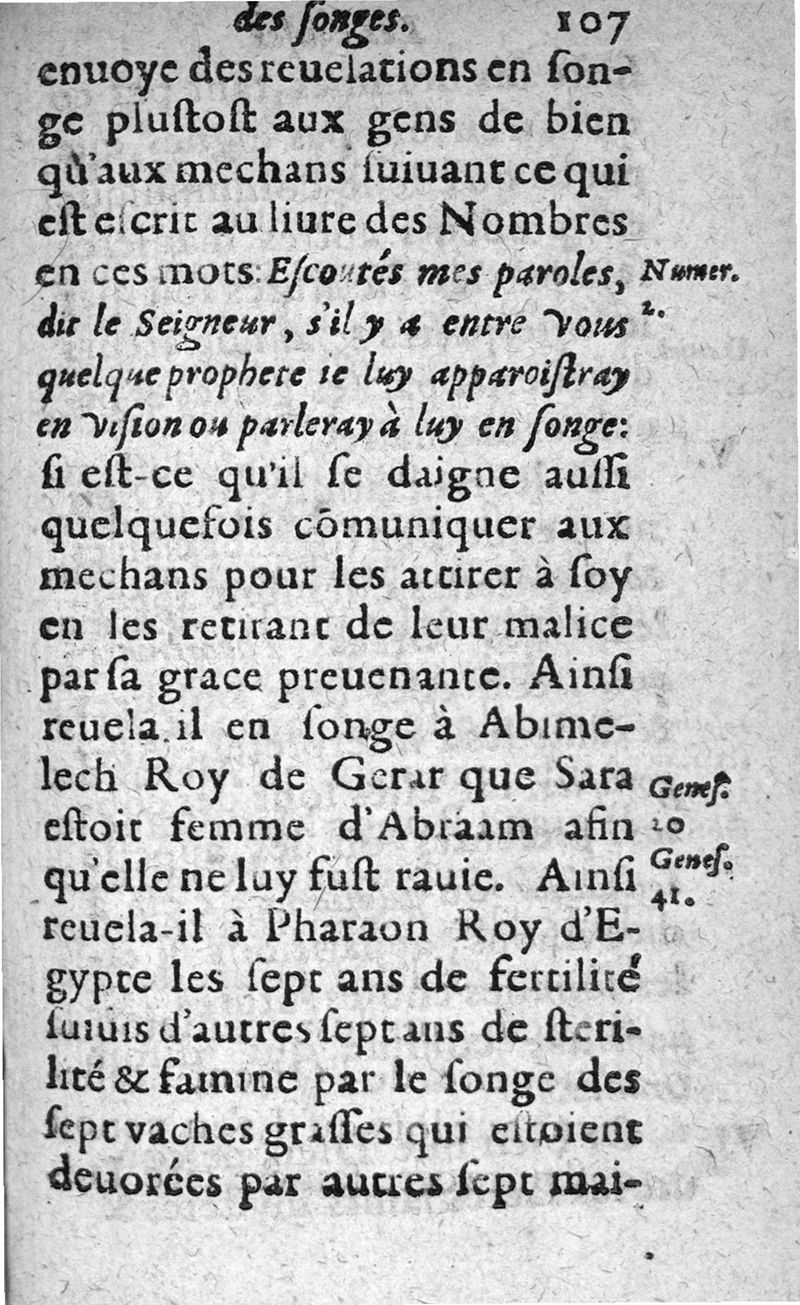 des ſonges. 107
enuoye des reuelations en ſon-
ge pluſtoſt aux gens de bien
qu'aux mechans ſuiuant ce qui
eſt eſcrit au liure des Nombres
en ces mots: Eſcoutés mes paroles,
Numer.
dit le Seigneur, s'il y a entre vous
2.
quelque prophete ie luy apparoiſtray
en viſion ou parleray à luy en ſonge:
ſi eſt-ce qu'il ſe daigne auſſi
quelquefois cõmuniquer aux
mechans pour les attirer à ſoy
en les retirant de leur malice
par ſa grace preuenante. Ainſi
reuela.il en ſonge à Abime-
lech Roy de Gerar que Sara
Geneſ.
eſtoit femme d'Abraam afin
20
qu'elle ne luy fuſt rauie. Ainſi
Geneſ.
41.
reuela-il à Pharaon Roy d'E-
gypte les ſept ans de fertilité
ſuiuis d'autres ſept ans de ſteri-
lité & famine par le ſonge des
ſept vaches graſſes qui eſtoient
deuorées par autres ſept mai-